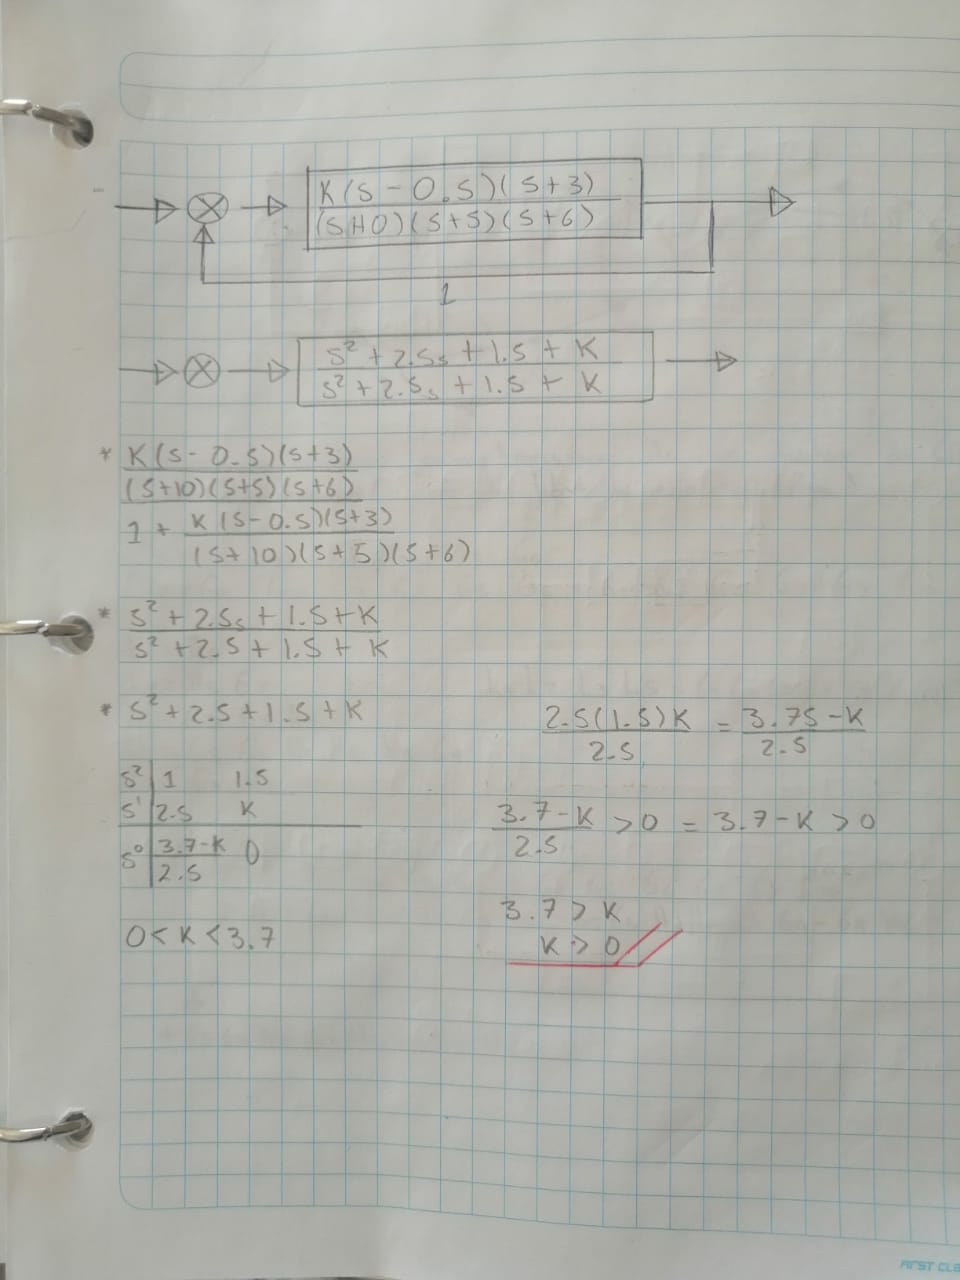 K(s - 0.5)(s+3)
(s+10)(s+5)(s+6)
1
s² + 2.5s + 1.5 + K
s² + 2.5s + 1.5 + K
* K(s - 0.5)(s+3)
(s+10)(s+5)(s+6)
1 + K(s-0.5)(s+3)
(s+10)(s+5)(s+6)
* s² + 2.5s + 1.5 + K
s² + 2.5 + 1.5 + K
* s² + 2.5 + 1.5 + K
s² 1 1.5
s¹ 2.5 K
s⁰ 3.7-K 0
2.5
0 < K < 3.7
2.5(1.5)K = 3.75-K
2.5 2.5
3.7-K > 0 = 3.7-K > 0
2.5
3.7 > K
K > 0